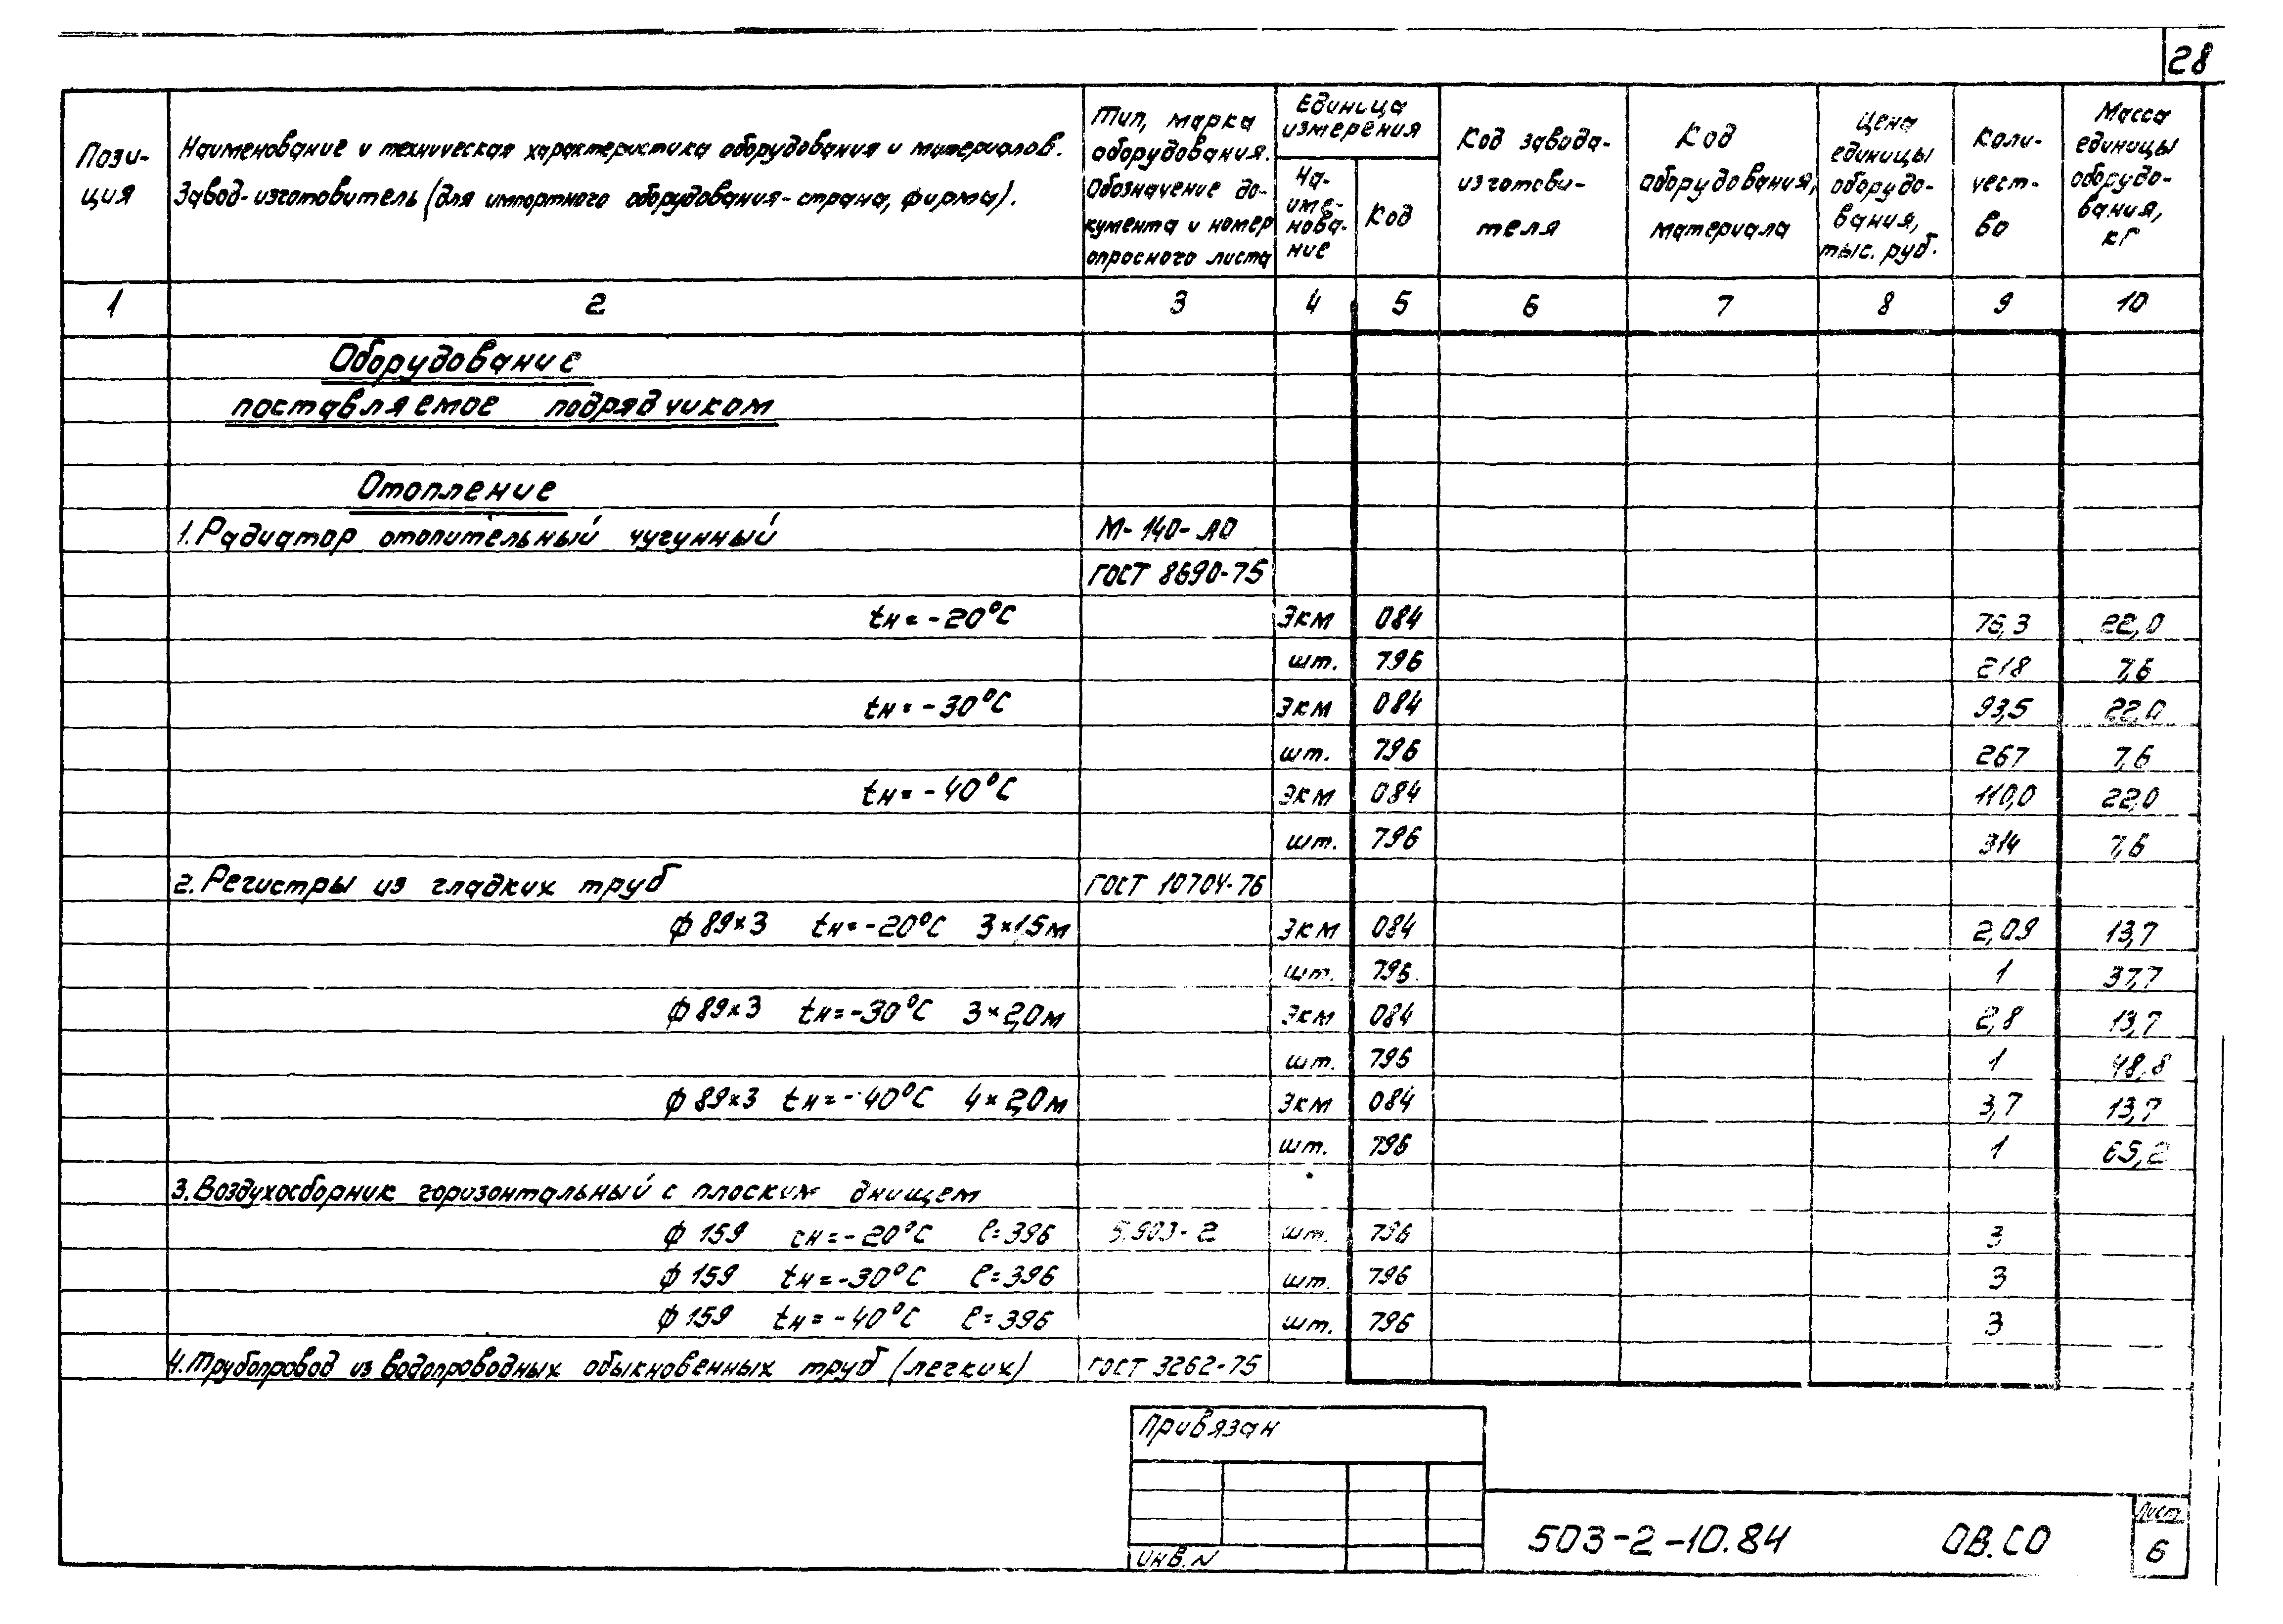 28
Пози-
ция
Наименование и техническая характеристика оборудования и материалов.
Завод-изготовитель (для импортного оборудования-страна, фирма).
Тип, марка
оборудования.
Обозначение до-
кумента и номер
опросного листа
Единица
измерения
На-
име-
нова-
ние
Код
Код завода-
изготови-
теля
Код
оборудования,
материала
Цена
единицы
оборудо-
вания,
тыс. руб.
Коли-
чест-
во
Масса
единицы
оборудо-
вания,
кг
1 2 3 4 5 6 7 8 9 10
Оборудование
поставляемое подрядчиком
Отопление
1. Радиатор отопительный чугунный М-140-АО
ГОСТ 8690-75
tн = -20°С экм 084 76,3 22,0
шт. 796 218 7,6
tн = -30°С экм 084 93,5 22,0
шт. 796 267 7,6
tн = -40°С экм 084 110,0 22,0
шт. 796 314 7,6
2. Регистры из гладких труб ГОСТ 10704-76
ф 89×3 tн = -20°С 3×1,5м экм 084 2,09 13,7
шт. 796 1 37,7
ф 89×3 tн = -30°С 3×2,0м экм 084 2,8 13,7
шт. 796 1 48,8
ф 89×3 tн = -40°С 4×2,0м экм 084 3,7 13,7
шт. 796 1 65,2
3. Воздухосборник горизонтальный с плоским днищем
ф 159 tн = -20°С l = 396 5.903-2 шт. 796 3
ф 159 tн = -30°С l = 396 шт. 796 3
ф 159 tн = -40°С l = 396 шт. 796 3
4. Трубопровод из водопроводных обыкновенных труб (легких) ГОСТ 3262-75
Привязан
инв. N
503-2-10.84 ОВ.СО
Лист
6